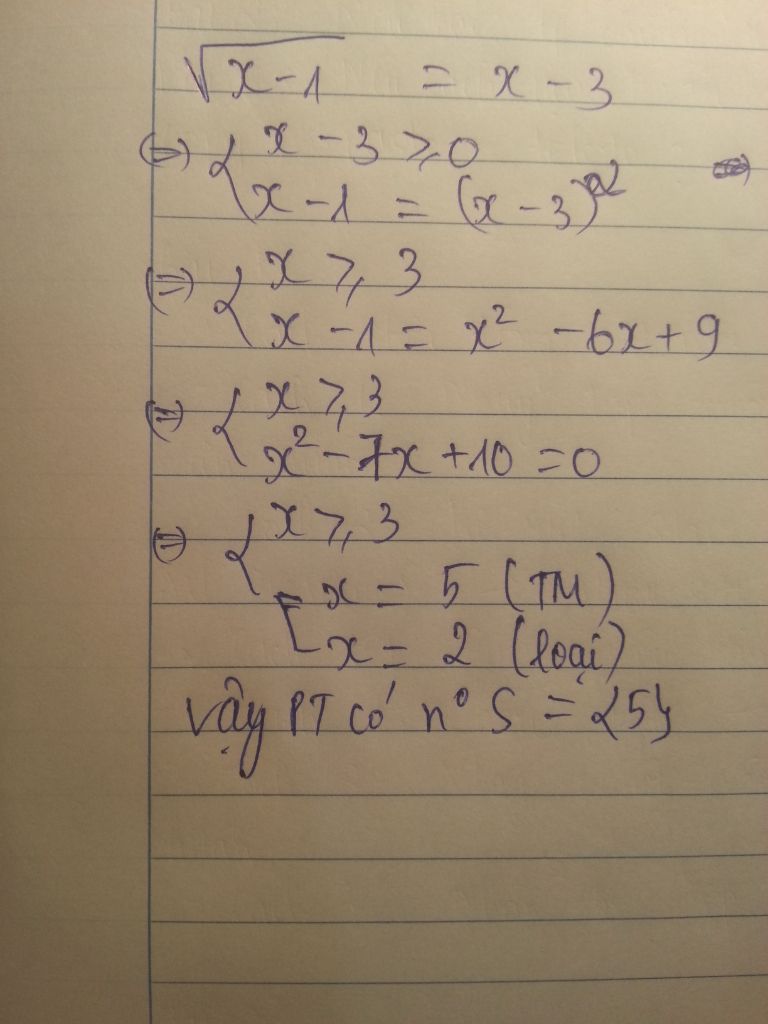 √x-1 = x - 3
(=) { x - 3 ≥ 0
x - 1 = (x - 3)²
(=) { x ≥ 3
x - 1 = x² - 6x + 9
(=) { x ≥ 3
x² - 7x + 10 = 0
(=) { x ≥ 3
[ x = 5 (TM)
x = 2 (loại)
Vậy PT có nº S = {5}